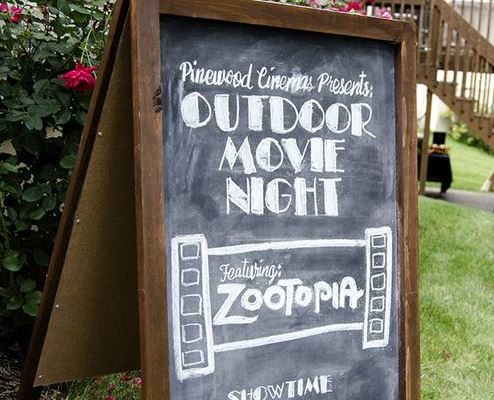 Pinewood Cinemas Presents:
OUTDOOR
MOVIE
NIGHT
Featuring:
ZOOTOPIA
SHOWTIME